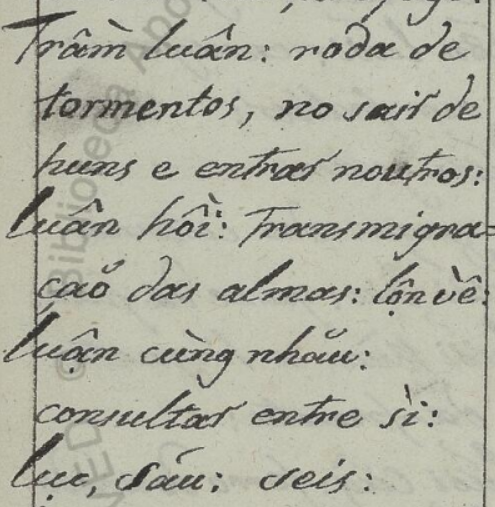 Trầm luân: roda de
tormentos, no sair de
huns e entrar noutros:
luân hồi: Transmigra=
caõ das almas: lộn vê:
luận cùng nhău:
consultar entre sì:
luc, sáu: seis: